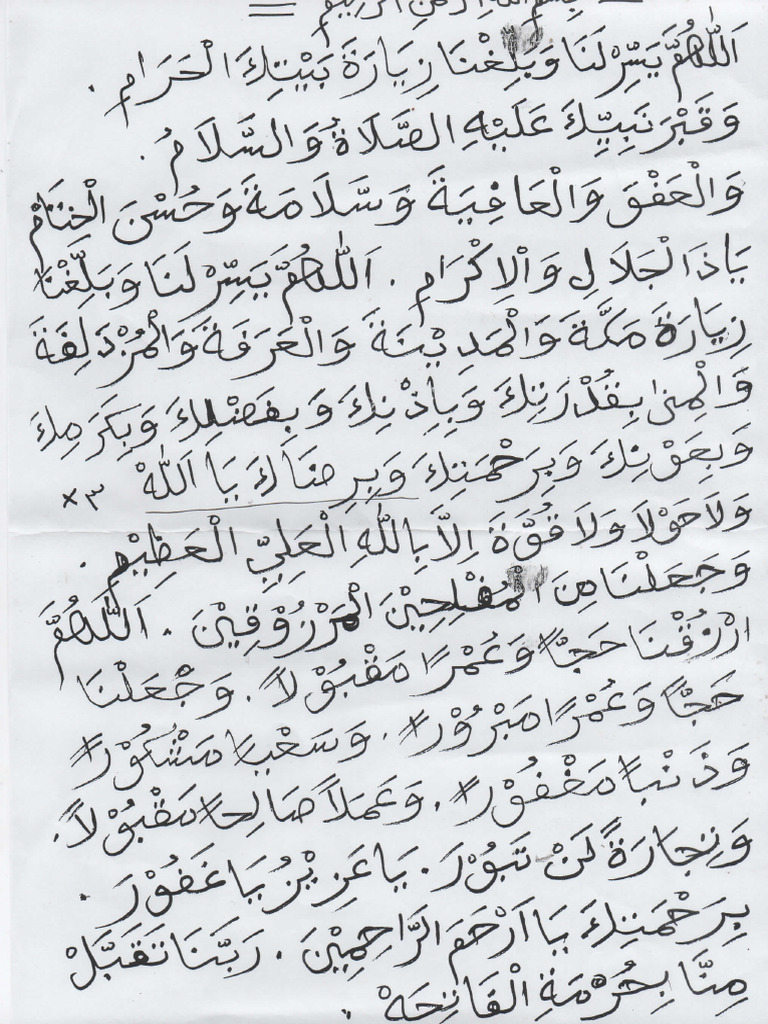 بِسْمِ اللهِ الرَّحْمَنِ الرَّحِيْمِ
اَللّٰهُمَّ يَسِّرْ لَنَا وَبَلِّغْنَا زِيَارَةَ بَيْتِكَ الْحَرَامِ .
وَقَبْرَ نَبِيِّكَ عَلَيْهِ الصَّلَاةُ وَالسَّلَامُ .
وَالْعَفْوَ وَالْعَافِيَةَ وَسَّلَامَةَ وَحُسْنَ الْخِتَامْ
يَاذَا لْجَلَالِ وَاْلاِكْرَامِ . اَللّٰهُمَّ يَسِّرْ لَنَا وَبَلِّغْنَا
زِيَارَةَ مَكَّةَ وَالْمَدِيْنَةَ وَالْعَرَفَةَ وَالْمُزْدَلِفَةَ
وَالْمِنٰى بِقُدْرَتِكَ وَبِاِذْنِكَ وَبِفَضْلِكَ وَبِكَرَمِكَ
وَبِعَوْنِكَ وَبِرَحْمَتِكَ وَبِرِضَاكَ يَا اَللهْ ×٣
وَلَاحَوْلَا وَلَا قُوَّةَ اِلَّا بِاللّٰهِ الْعَلِيِّ الْعَظِيْمِ .
وَجَعَلْنَا مِنَ الْمُفْلِحِيْنَ الْمَرْزُوْقِيْنَ . اَللّٰهُمَّ
ارْزُقْنَا حَجًّا وَعُمْرًا مَقْبُوْلاً . وَجْعَلْنَا
حَجًّا وَعُمْرًا مَبْرُوْرًا . وَسَعْيًا مَشْكُوْرًا
وَذَنْبًا مَغْفُوْرًا . وَعَمَلاً صَالِحًا مَقْبُوْلاً .
وَتِجَارَةً لَنْ تَبُوْرَ . يَا عَزِيْزُ يَا غَفُوْرَ .
بِرَحْمَتِكَ يَا اَرْحَمَ الرَّاحِمِيْنَ . رَبَّنَا تَقَبَّلْ
مِنَّا بِحُرْمَةِ الْفَاتِحَهْ .